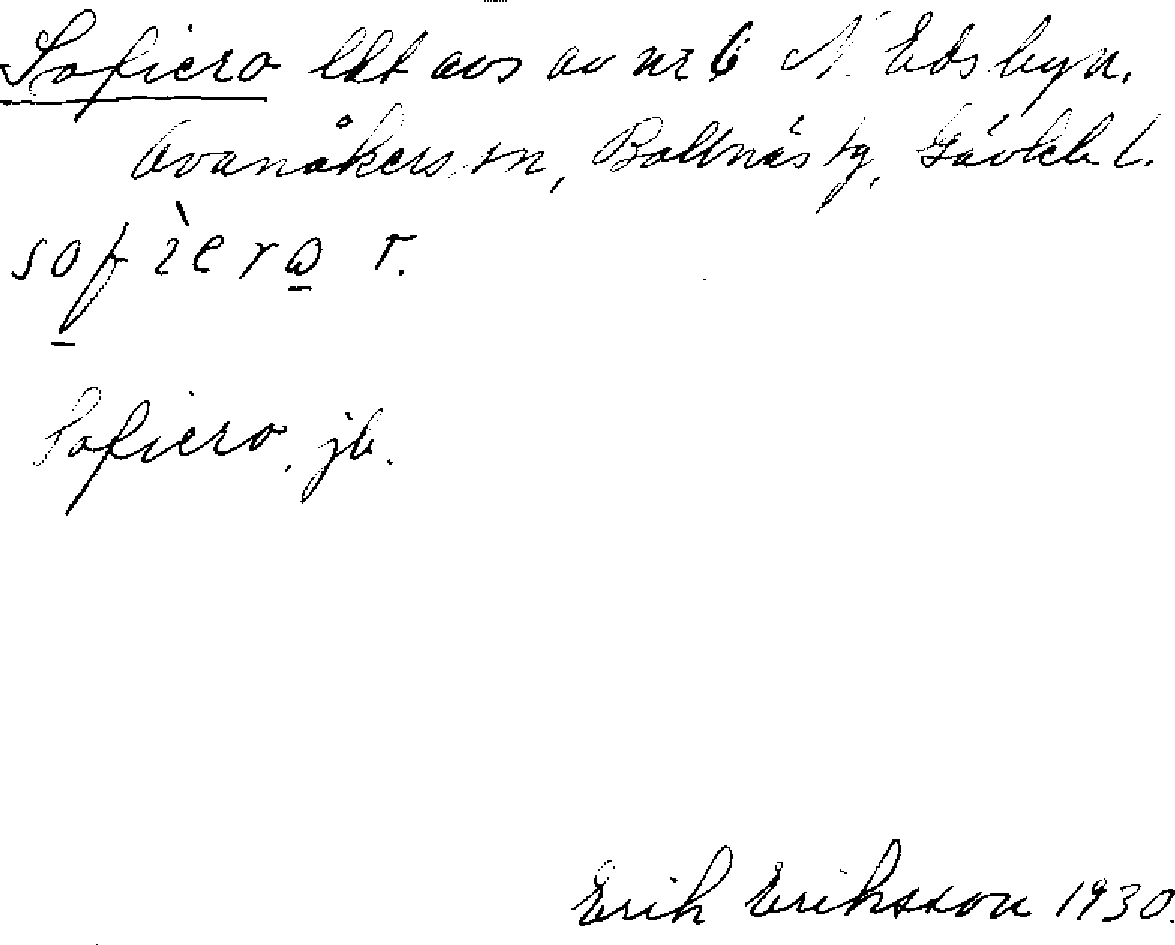 Sofiero lht avs av nr 6 N. Edsbyn.
Ovanåkers sn, Bollnäs tg, Gävleb. l.
sofìero r.
Sofiero, jb.
Erik Eriksson 1930.